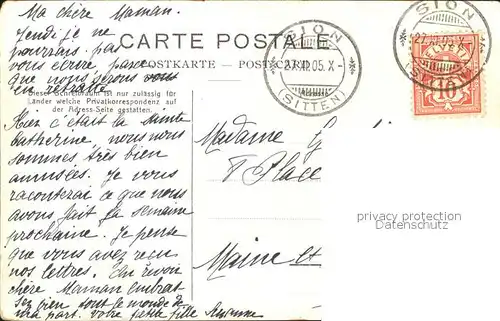 Ma chère Maman.
SION
Jeudi je ne
pourrais pas
vous écrire parce
que nous serons
en retraite
CARTE POSTALE
POSTKARTE - POSTCARD
27.XI.05.X
(SITTEN)
SION
27.XI.05.X
10
Dieser Schreibraum ist nur zulässig für
Länder welche Privatkorrespondenz auf
der Adress-Seite gestatten.
Hier c'était la Sainte
Catherine, nous nous
sommes très bien
amusées. Je vous
raconterai ce que nous
avons fait la semaine
prochaine. Je pense
que vous avez reçu
nos lettres. Au revoir
chère Maman embrassez
bien tout le monde de
ma part. votre petite fille
Madame G
Place
Maine et
privacy protection
Datenschutz